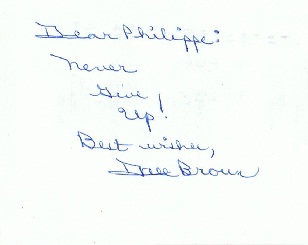 Dear Philippe:
Never
Give
Up!
Best wishes,
Dee Brown